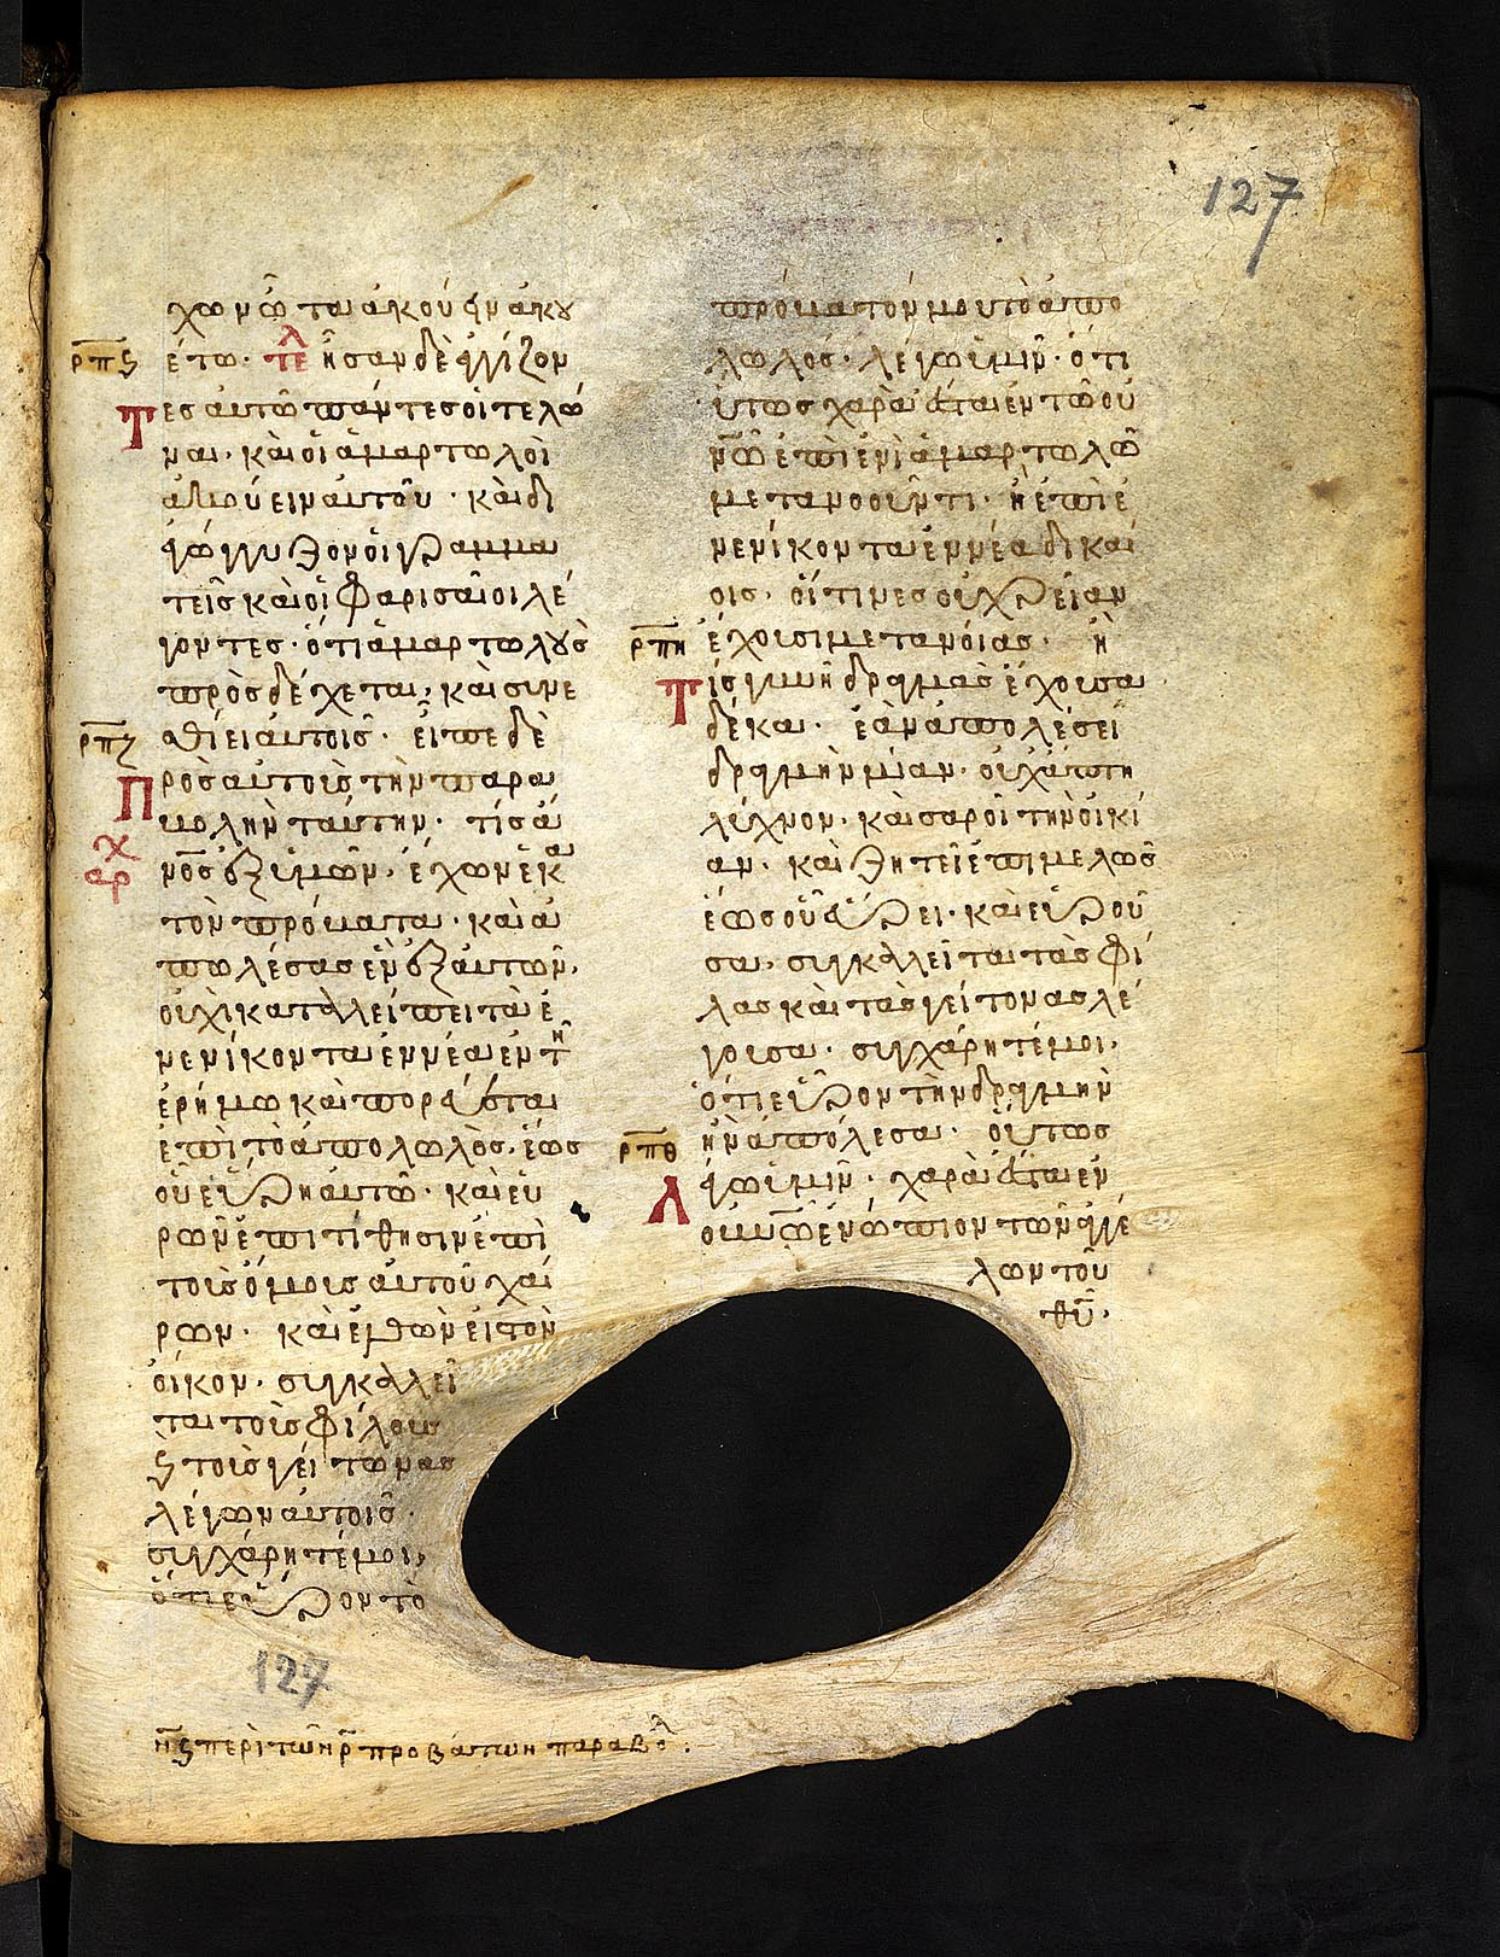 127
χων ὦτα ἀκούειν ἀκȣ
ρπς έτω· τελ ἦσαν δὲ ἐγγίζον
Τες αὐτῶ πάντες οἱ τελώ
ναι· καὶ οἱ ἁμαρτωλοὶ
ἀκούειν αὐτοῦ· καὶ δι
εγώγγυζον οἱ γραμμα
τεῖς καὶ οἱ φαρισαῖοι λέ
γοντες· ὅτι ἁμαρτωλȣς
προσδέχεται, καὶ συνε
ρπζ σθίει αὐτοῖς· εἶπε δὲ
Πρὸς αὐτοὺς τὴν παρα
βολὴν ταύτην· τίς ἄ
χ
αρ
νο̅ς ἐξ ὑμῶν, ἔχων ἑκα
τὸν πρόβατα· καὶ ἀ
πωλέσας ἓν ἐξ αὐτῶν,
οὐχὶ καταλείπει τὰ ἐ
νενίκοντα ἐννέα ἐν τῆ
ἐρήμω καὶ πορεύεται
ἐπὶ τὸ ἀπολωλὸς, ἕως
οὗ εὕρη αὐτῶ· καὶ εὑ
ρὼν ἐπιτίθησιν ἐπὶ
τοὺς ὤμους αὐτοῦ χαί
ρων· καὶ ἐλθὼν εἰς τὸν
οἶκον· συγκαλεῖ
ται τοὺς φίλους
ϗ τοὺς γείτωνας
λέγων αὐτοῖς·
συγχάρητέ μοι,
ὅτι εὗρον τὸ
πρόβατόν μου τὸ ἀπο
λωλός· λέγω ὑμῖν· ὅτι
ὕτως χαρὰ ἔσται ἐν τῶ οὐ
ν̅ῶ ἐπὶ ἑνὶ ἁμαρτωλῶ
μετανοοῦντι· ἢ ἐπὶ ἐ
νενίκοντα ἐννέα δικαί
οις· οἵτινες οὐ χρείαν
ρπη ἔχουσι μετανοίας· ἢ
Τίς γυνὴ δραχμὰς ἔχουσα
δέκα· ἐὰν ἀπολέσει
δραχμὴν μίαν· οὐχ ἅπτη
λύχνον· καὶ σαροῖ τὴν οἰκί
αν· καὶ ζητεῖ ἐπιμελῶς
ἕως οὗ εὕρει· καὶ εὑροῦ
σα, συγκαλεῖται τὰς φί
λας καὶ τὰς γείτονας λέ
γουσα· συγχάρητέ μοι,
ὅτι εὗρον τὴν δραχμὴν
ρπθ ἣν ἀπόλεσα· οὕτως
Λέγω ὑμῖν· χαρὰ ἔσται ἐν
οὐν̅ῶ ἐνώπιον τῶν ἀγγέ
λων τοῦ
θ̅υ̅·
127
ν̅ϛ περὶ τῶν ρ̅ προβάτων παραβολ·